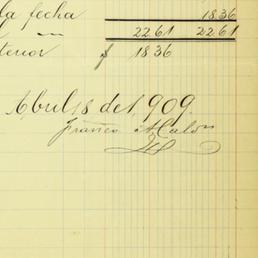 la fecha 18 36
22 61 22 61
terior $ 18 36
Abril 8 de 1,909.
Franco